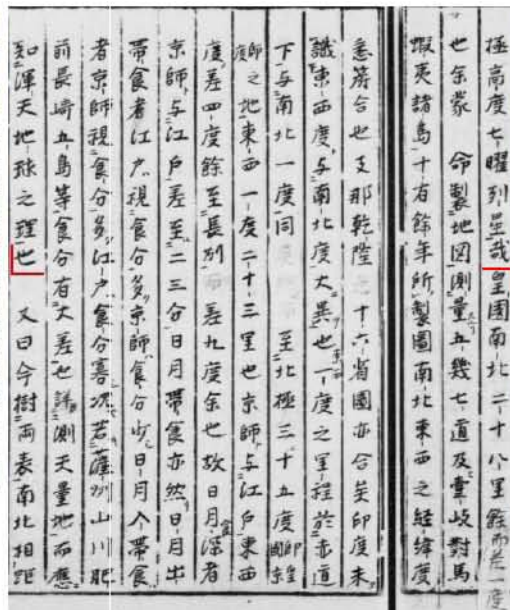 極高度七曜列星哉皇國南北二十八里餘而差一度
也余蒙 命製地図測量五幾七道及壹岐對馬
蝦夷諸島十有餘年所製圖南北東西之経緯度
悉符合也支那乾隆十六省圖亦合矣印度未
識東西度与南北度大異也一度之里程於赤道
下与南北一度同 至北極三十五度即京師國
之地東西一度二十三里也京師与江戸東西
度差四度餘至長列 差九度余也故日月深者
京師与江戸差至二三分日月帶食亦然日月出
帶食者江戸視食分多京師食分少日月入帶食
者京師視食分多江戸食分寡況若薩州山川肥
前長崎五島等食分有大差也詳測天量地而應
知渾天地球之理也 又曰今樹両表南北相距